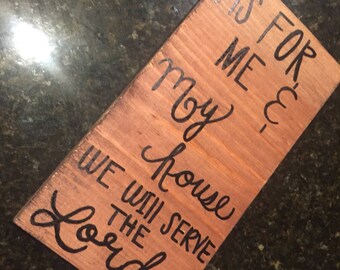 AS FOR
ME &
My
house
WE WIll SERVE
THE
Lord